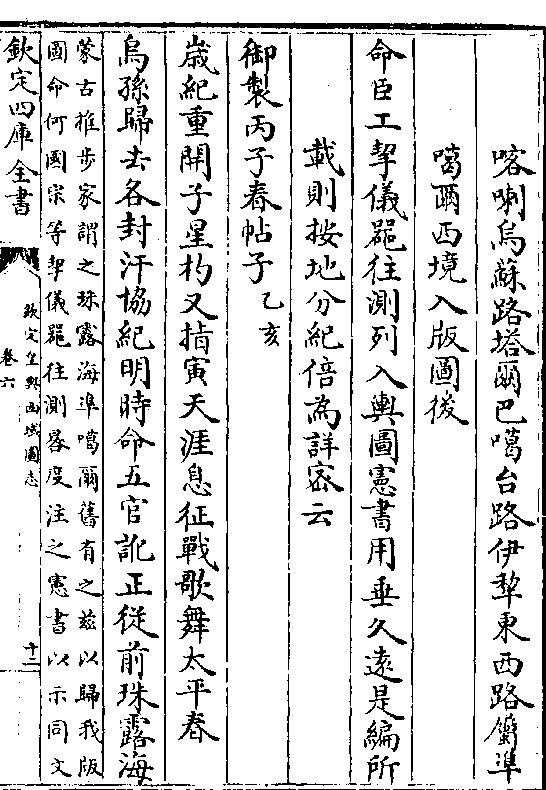 喀喇烏蘇路塔爾巴噶台路伊犂東西路鬱準
噶爾西境入版圖後
命臣工挈儀器往測列入輿圖憲書用垂久遠是編所
載則按地分紀倍為詳密云
御製丙子春帖子乙亥
歲紀重開子星杓又指寅天涯息征戰歌舞太平春
烏孫歸去各封汗協紀明時命五官訛正從前珠露海
蒙古推步家謂之珠露海準噶爾舊有之兹以歸我版
圖命何國宗等挈儀器往測晷度注之憲書以示同文
欽定四庫全書
欽定皇輿西域圖志
卷六
十二